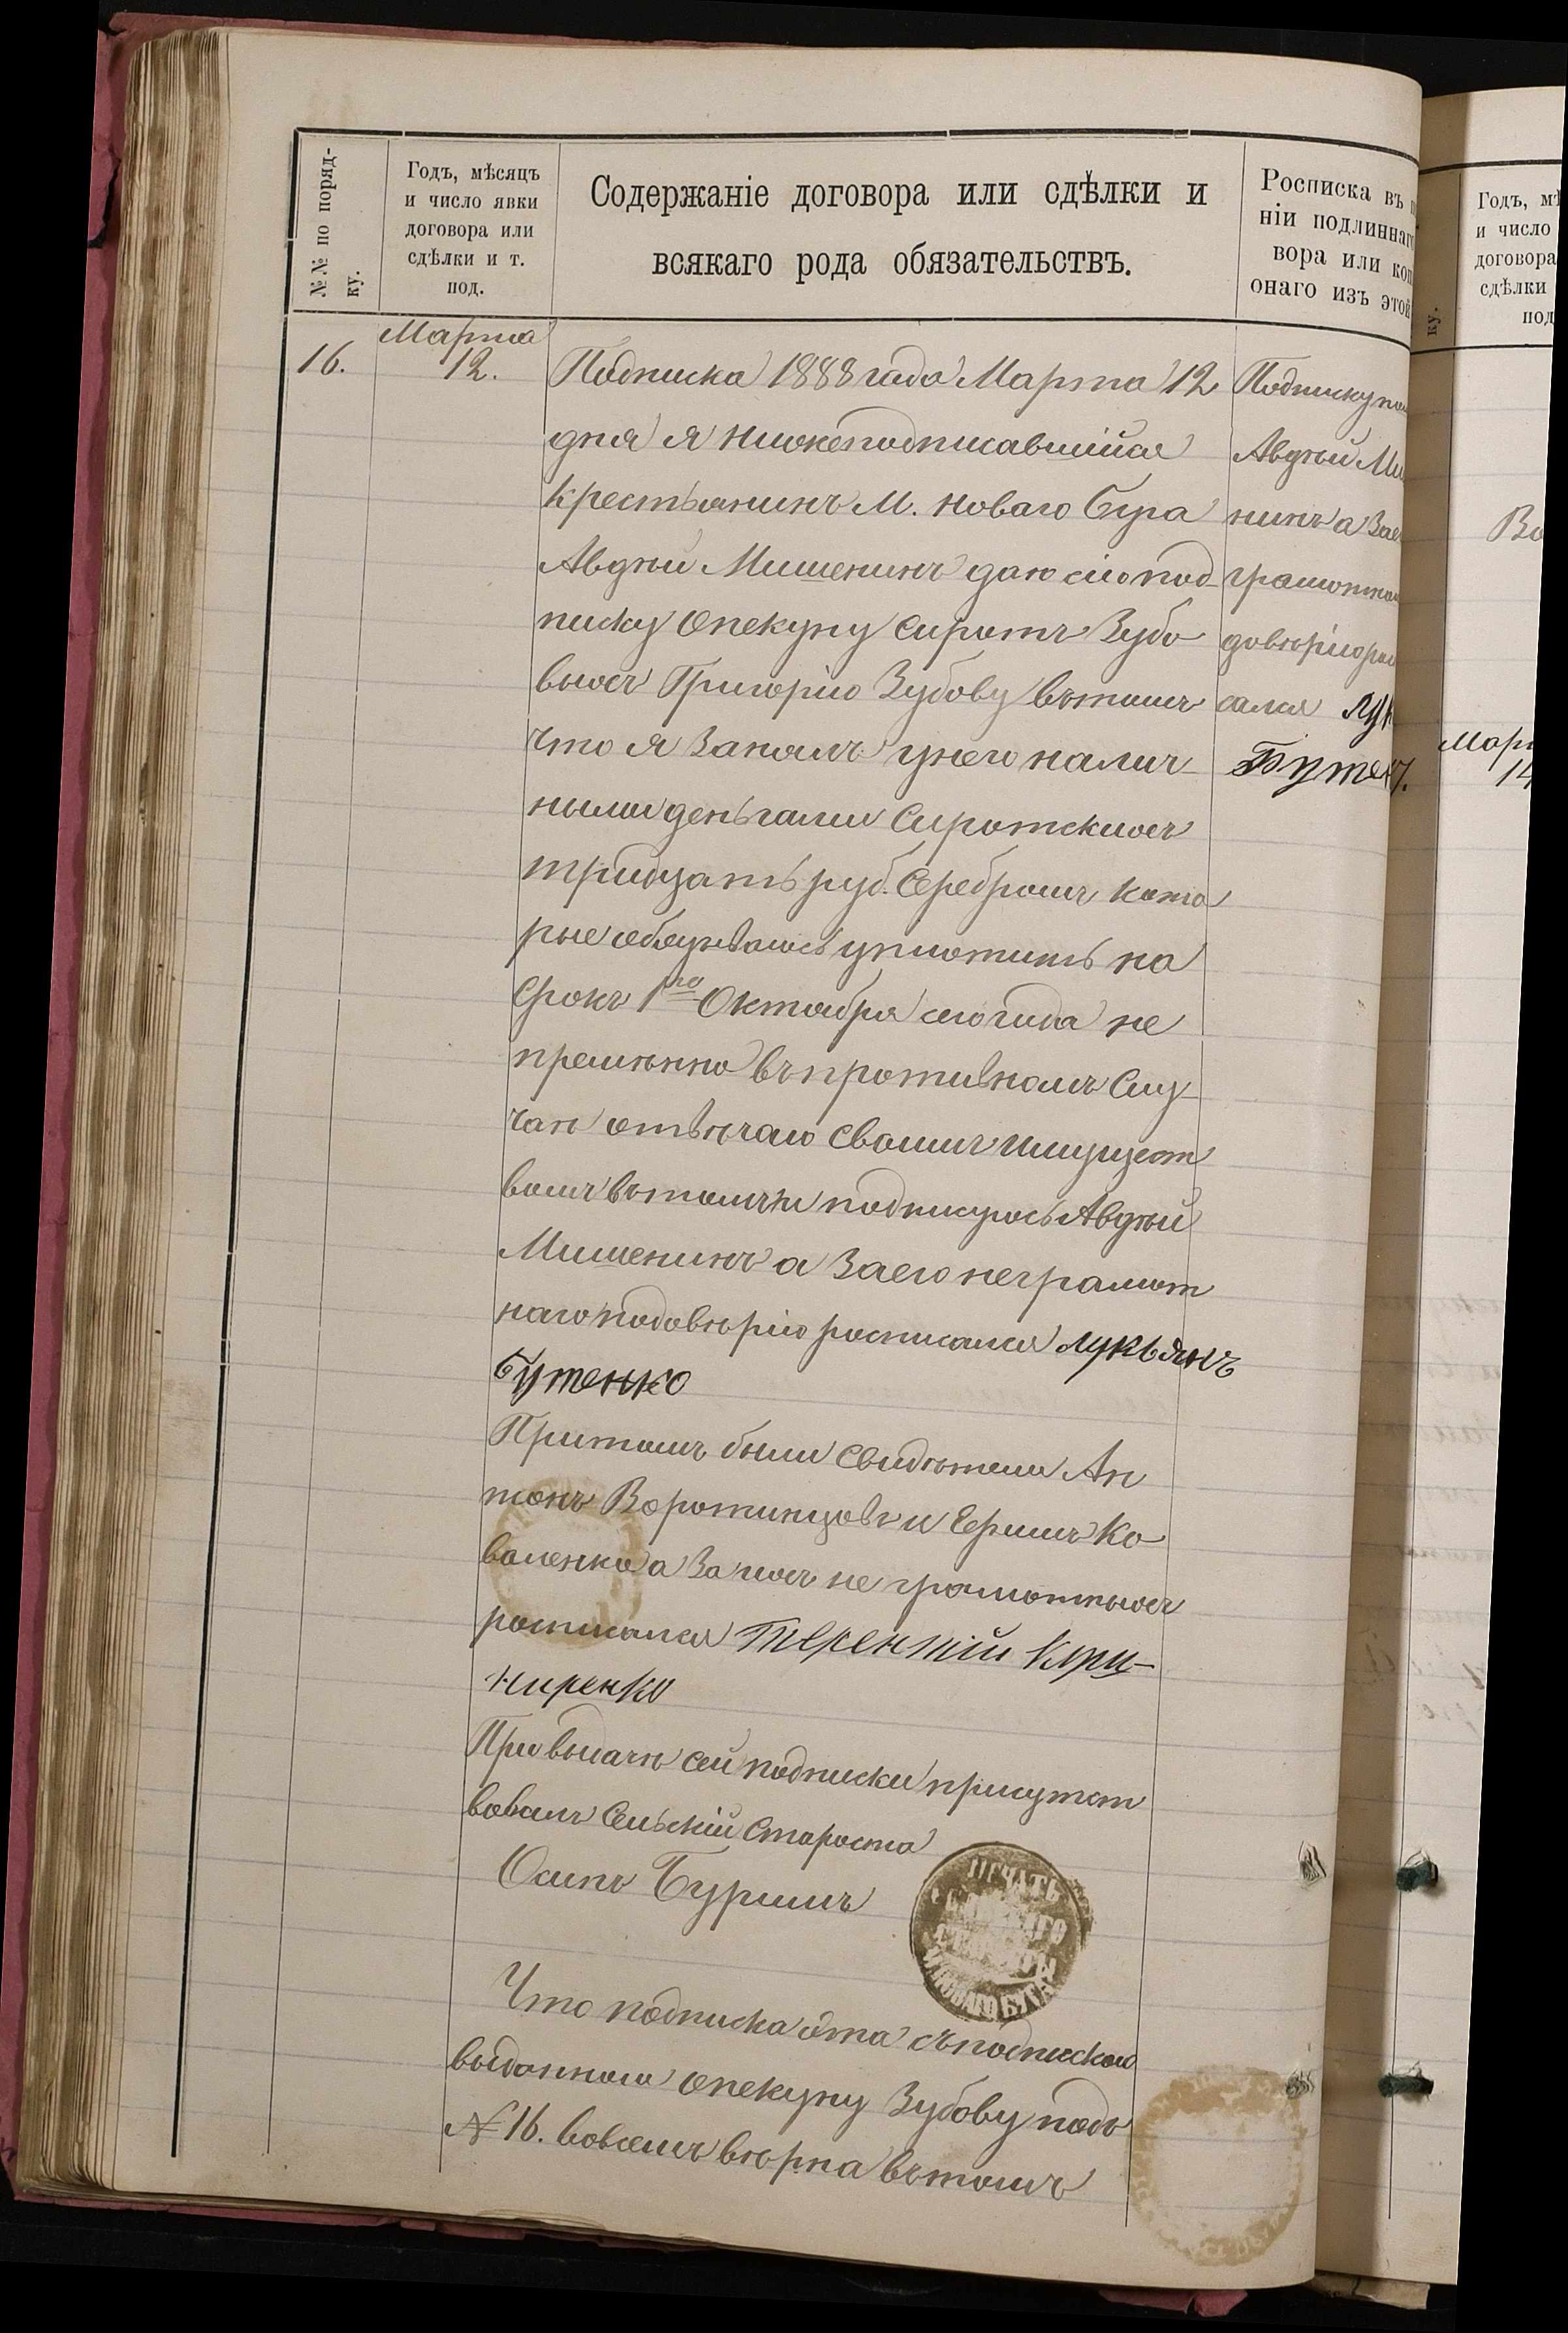 №№ по поряд-
ку.
Годъ, мѣсяцъ
и число явки
договора или
сдѣлки и т.
под.
Содержаніе договора или сдѣлки и
всякаго рода обязательствъ.
Росписка въ
ніи подлиннаг
вора или коп
онаго изъ этой
16.
Марта
12.
Подписка 1888 года Марта 12
дня я нижеподписавшійся
крестьянинъ М. Новаго Буга
Авдѣй Мишенинъ даю сію под-
писку Опекуну Сиротъ Зубо
выхъ Григорію Зубову вътомъ
что я Занялъ унего налич-
ными деньгами Сиротскихъ
тридцать руб. Серебромъ кото
рые обязуюсь уплотить на
Срокъ 1го Октября сего года не
премѣнно въпротивномъ Слу-
чаѣ отвѣчаю Своимъ имущест
вомъ вътомъ и подписуюсь Авдѣй
Мишенинъ а Заего неграмот
наго подовѣрію росписался Лукьянъ
Бутенко
Притомъ были Свидѣтели Ан
тонъ Воротинцовъ и Ефимъ Ко
валенко а За ихъ не грамотныхъ
росписался Терентій Кри-
ниренко
При выдачѣ сей подписки присутст
вовалъ Сельскій Староста
Осипъ Буримъ
ПЕЧАТЬ
НОВАГО БУГА
Что подписка эта съподпискою
выданною опекуну Зубову подъ
№ 16. вовсемъ вѣрна вътомъ
Подписку
Авдѣй Ми
нинъ а Зае
грамотна
довѣрію рос
сался Лук
Бутен.
Годъ, мѣ
и число
договора
сдѣлки
под
ку.
Во
Мар
14